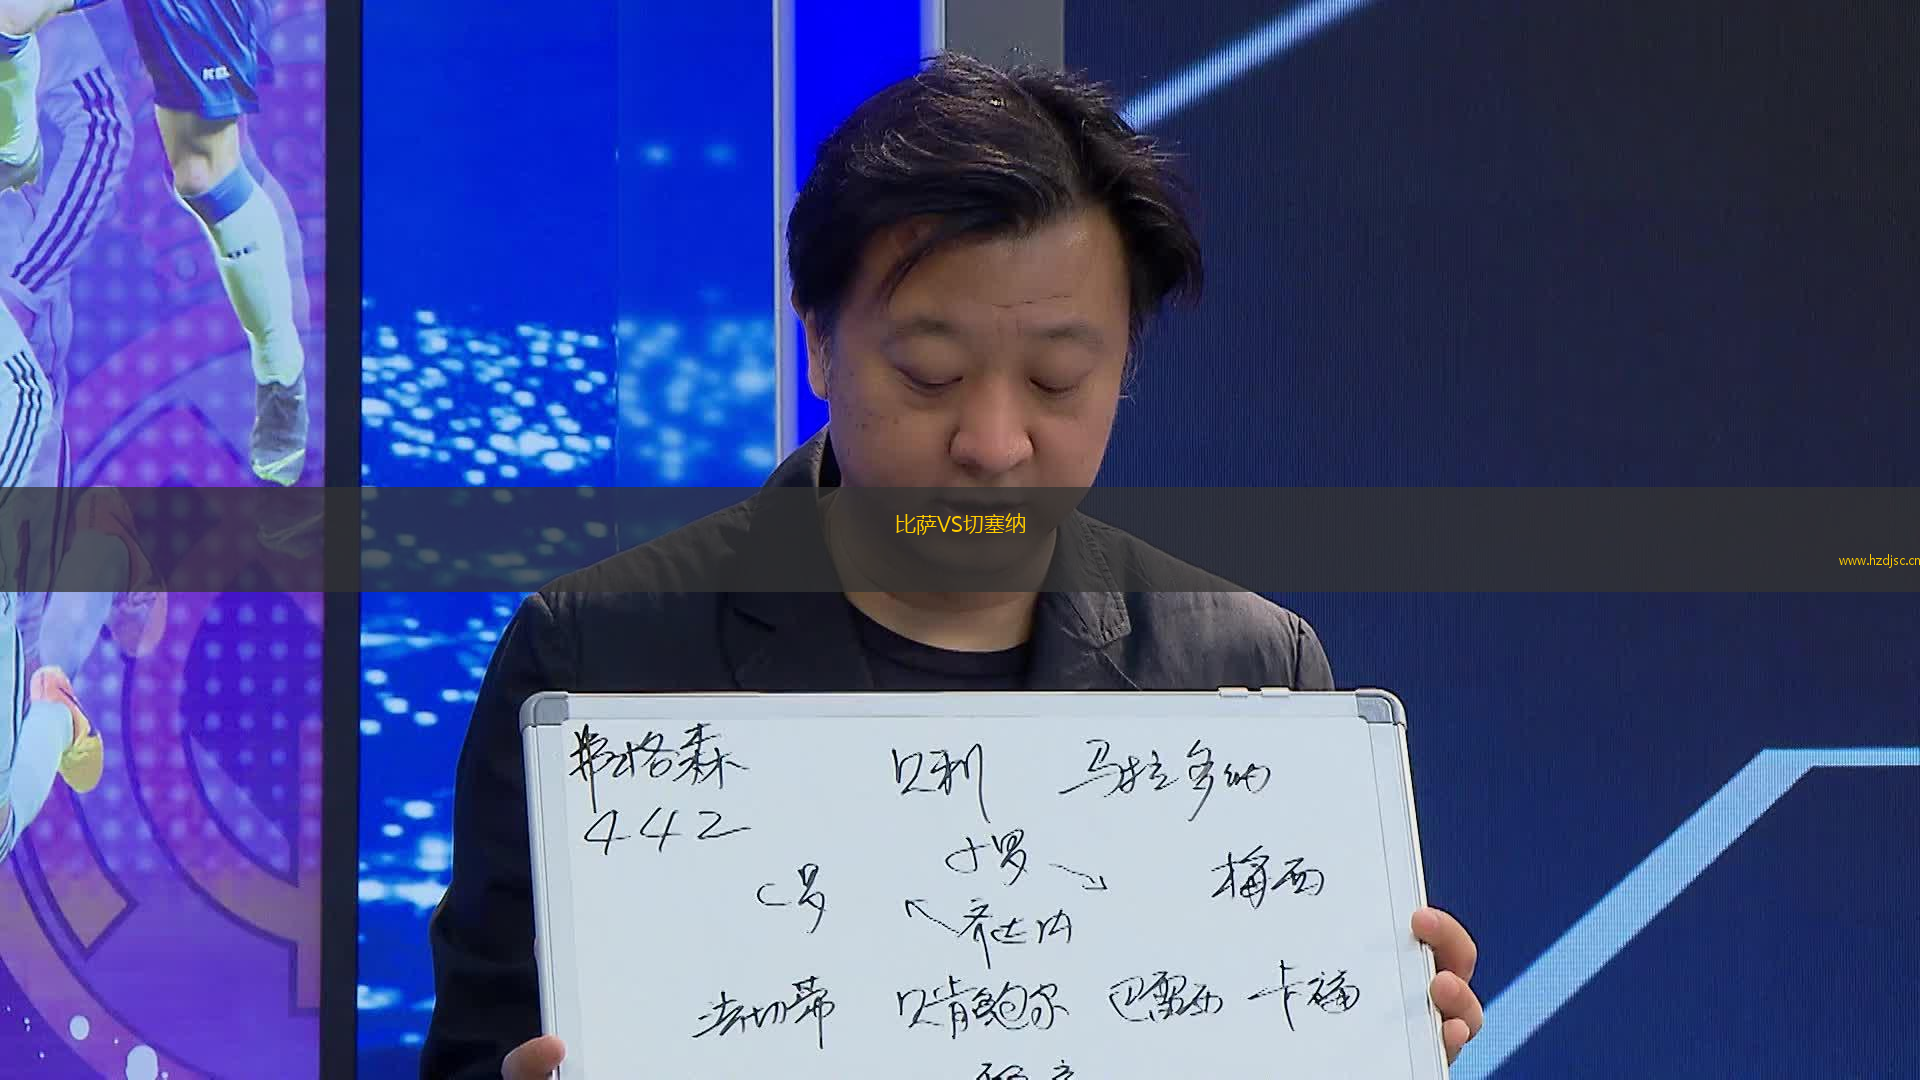 比萨VS切塞纳
www.hzdjsc.cn
弗格森 贝利 马拉多纳
442
小罗
C罗 梅西
齐达内
法切蒂 贝肯鲍尔 巴雷西 卡福